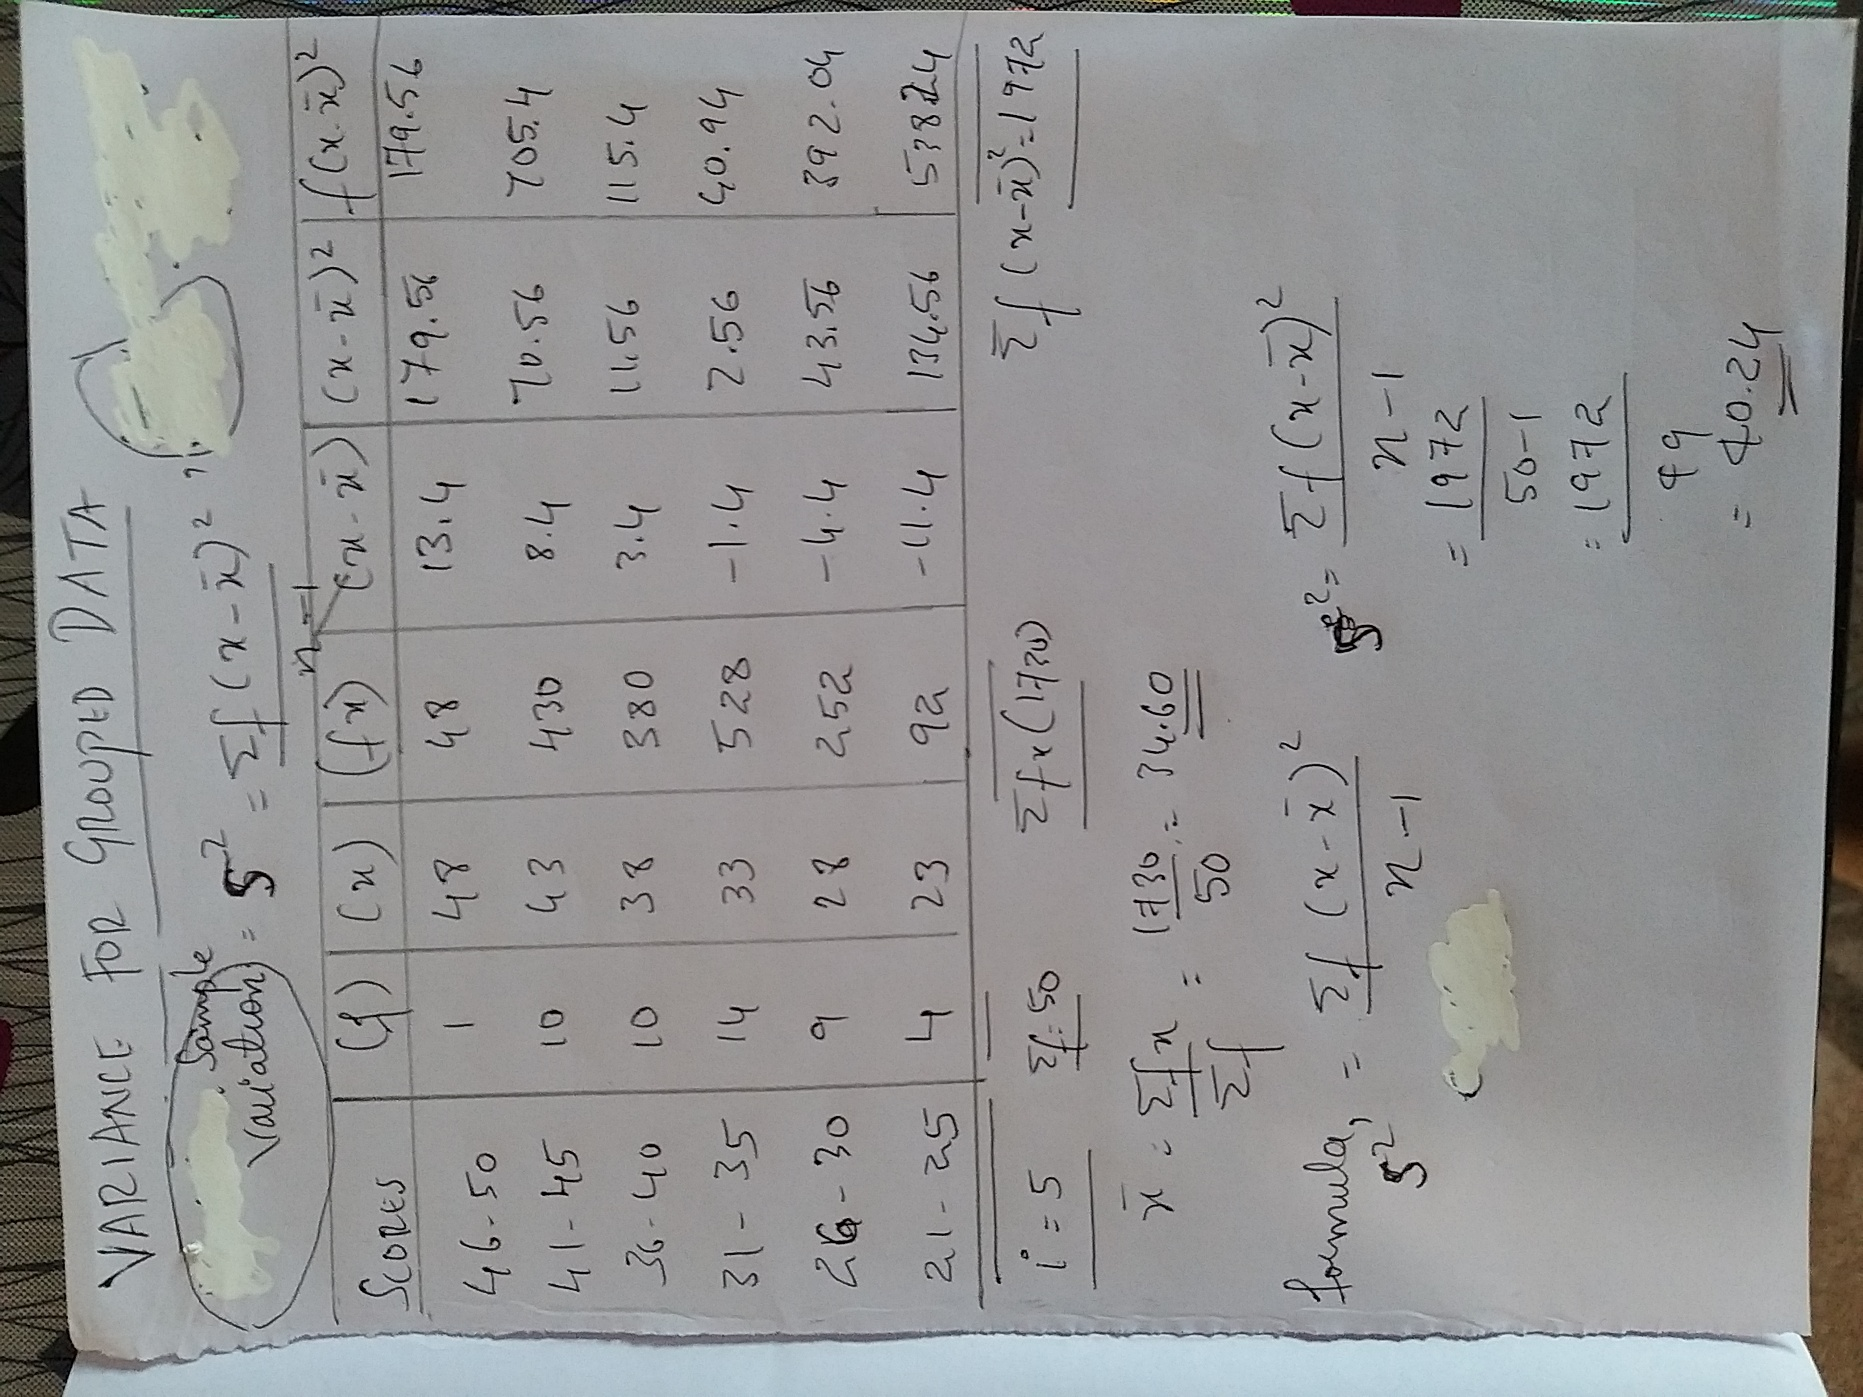 VARIANCE FOR GROUPED DATA
Sample
Variation = S² = Σf(x-x̄)²
n-1
Scores (f) (x) (fx) (x-x̄) (x-x̄)² f(x-x̄)²
46-50 1 48 48 13.4 179.56 179.56
41-45 10 43 430 8.4 70.56 705.4
36-40 10 38 380 3.4 11.56 115.4
31-35 14 33 528 -1.4 2.56 40.94
26-30 9 28 252 -4.4 43.56 392.04
21-25 4 23 92 -11.4 134.56 538.24
i=5 Σf=50 Σfx(1730) Σf(x-x̄)²=1972
x̄ = Σfx = 1730 = 34.60
Σf 50
formula, = Σf(x-x̄)² S² = Σf(x-x̄)²
S² n-1 n-1
= 1972
50-1
= 1972
49
= 40.24